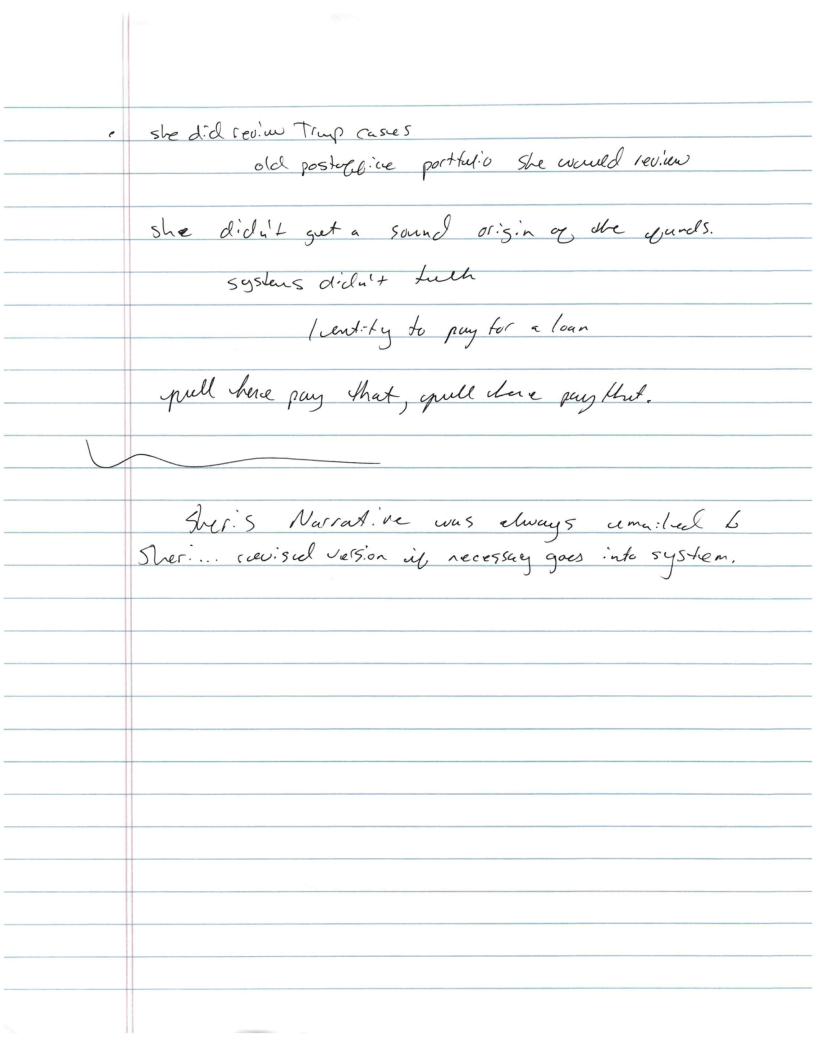 • she did review Trump cases
old postoffice portfolio she would review
she didn't get a sound origin of the funds.
systems didn't
1 entity to pay for a loan
pull here pay that, pull here pay that.
Sheri's Narrative was always emailed to
Sheri... revised version if necessary goes into system.